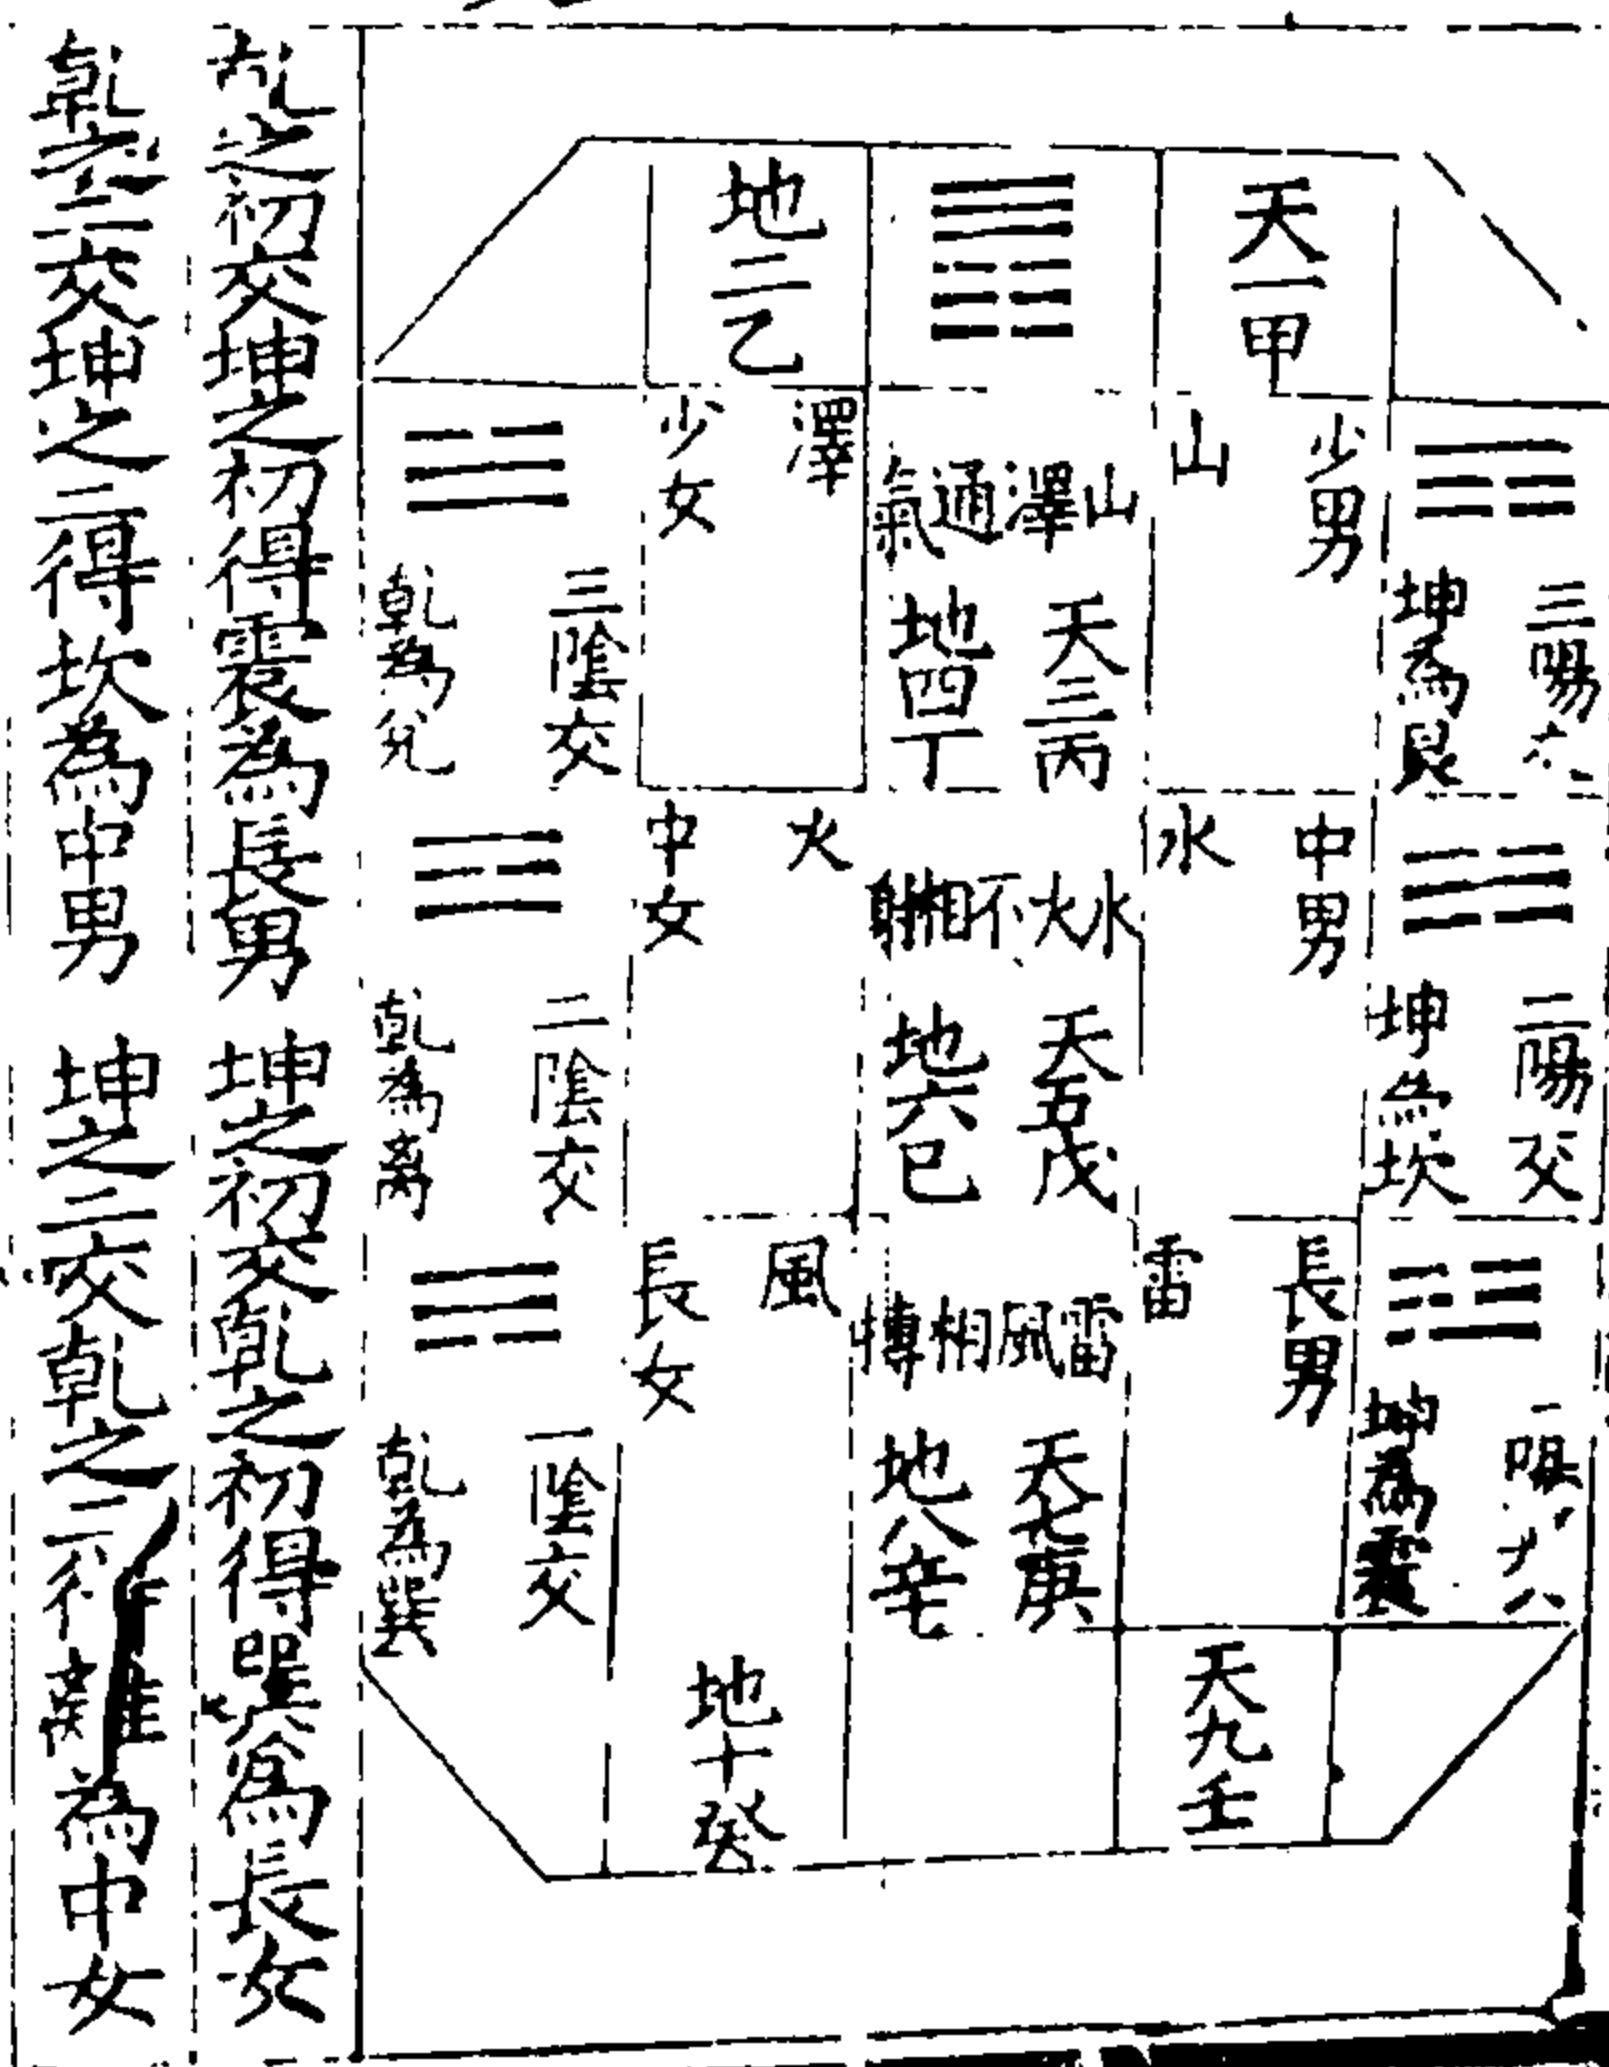 天一甲
地二乙
三陽
坤為艮
少男
山
山澤通氣
天三丙
地四丁
澤
少女
三陰交
乾為兌
二陽交
坤為坎
中男
水
水火不相射
天五戊
地六己
火
中女
二陰交
乾為离
一陽
坤為震
長男
雷
雷風相轉
天七庚
地八辛
風
長女
一陰交
乾為巽
天九壬
地十癸
之初交坤之初得震為長男 坤之初交乾之初得巽為長女
乾之二交坤之二得坎為中男 坤之二交乾之二得離為中女